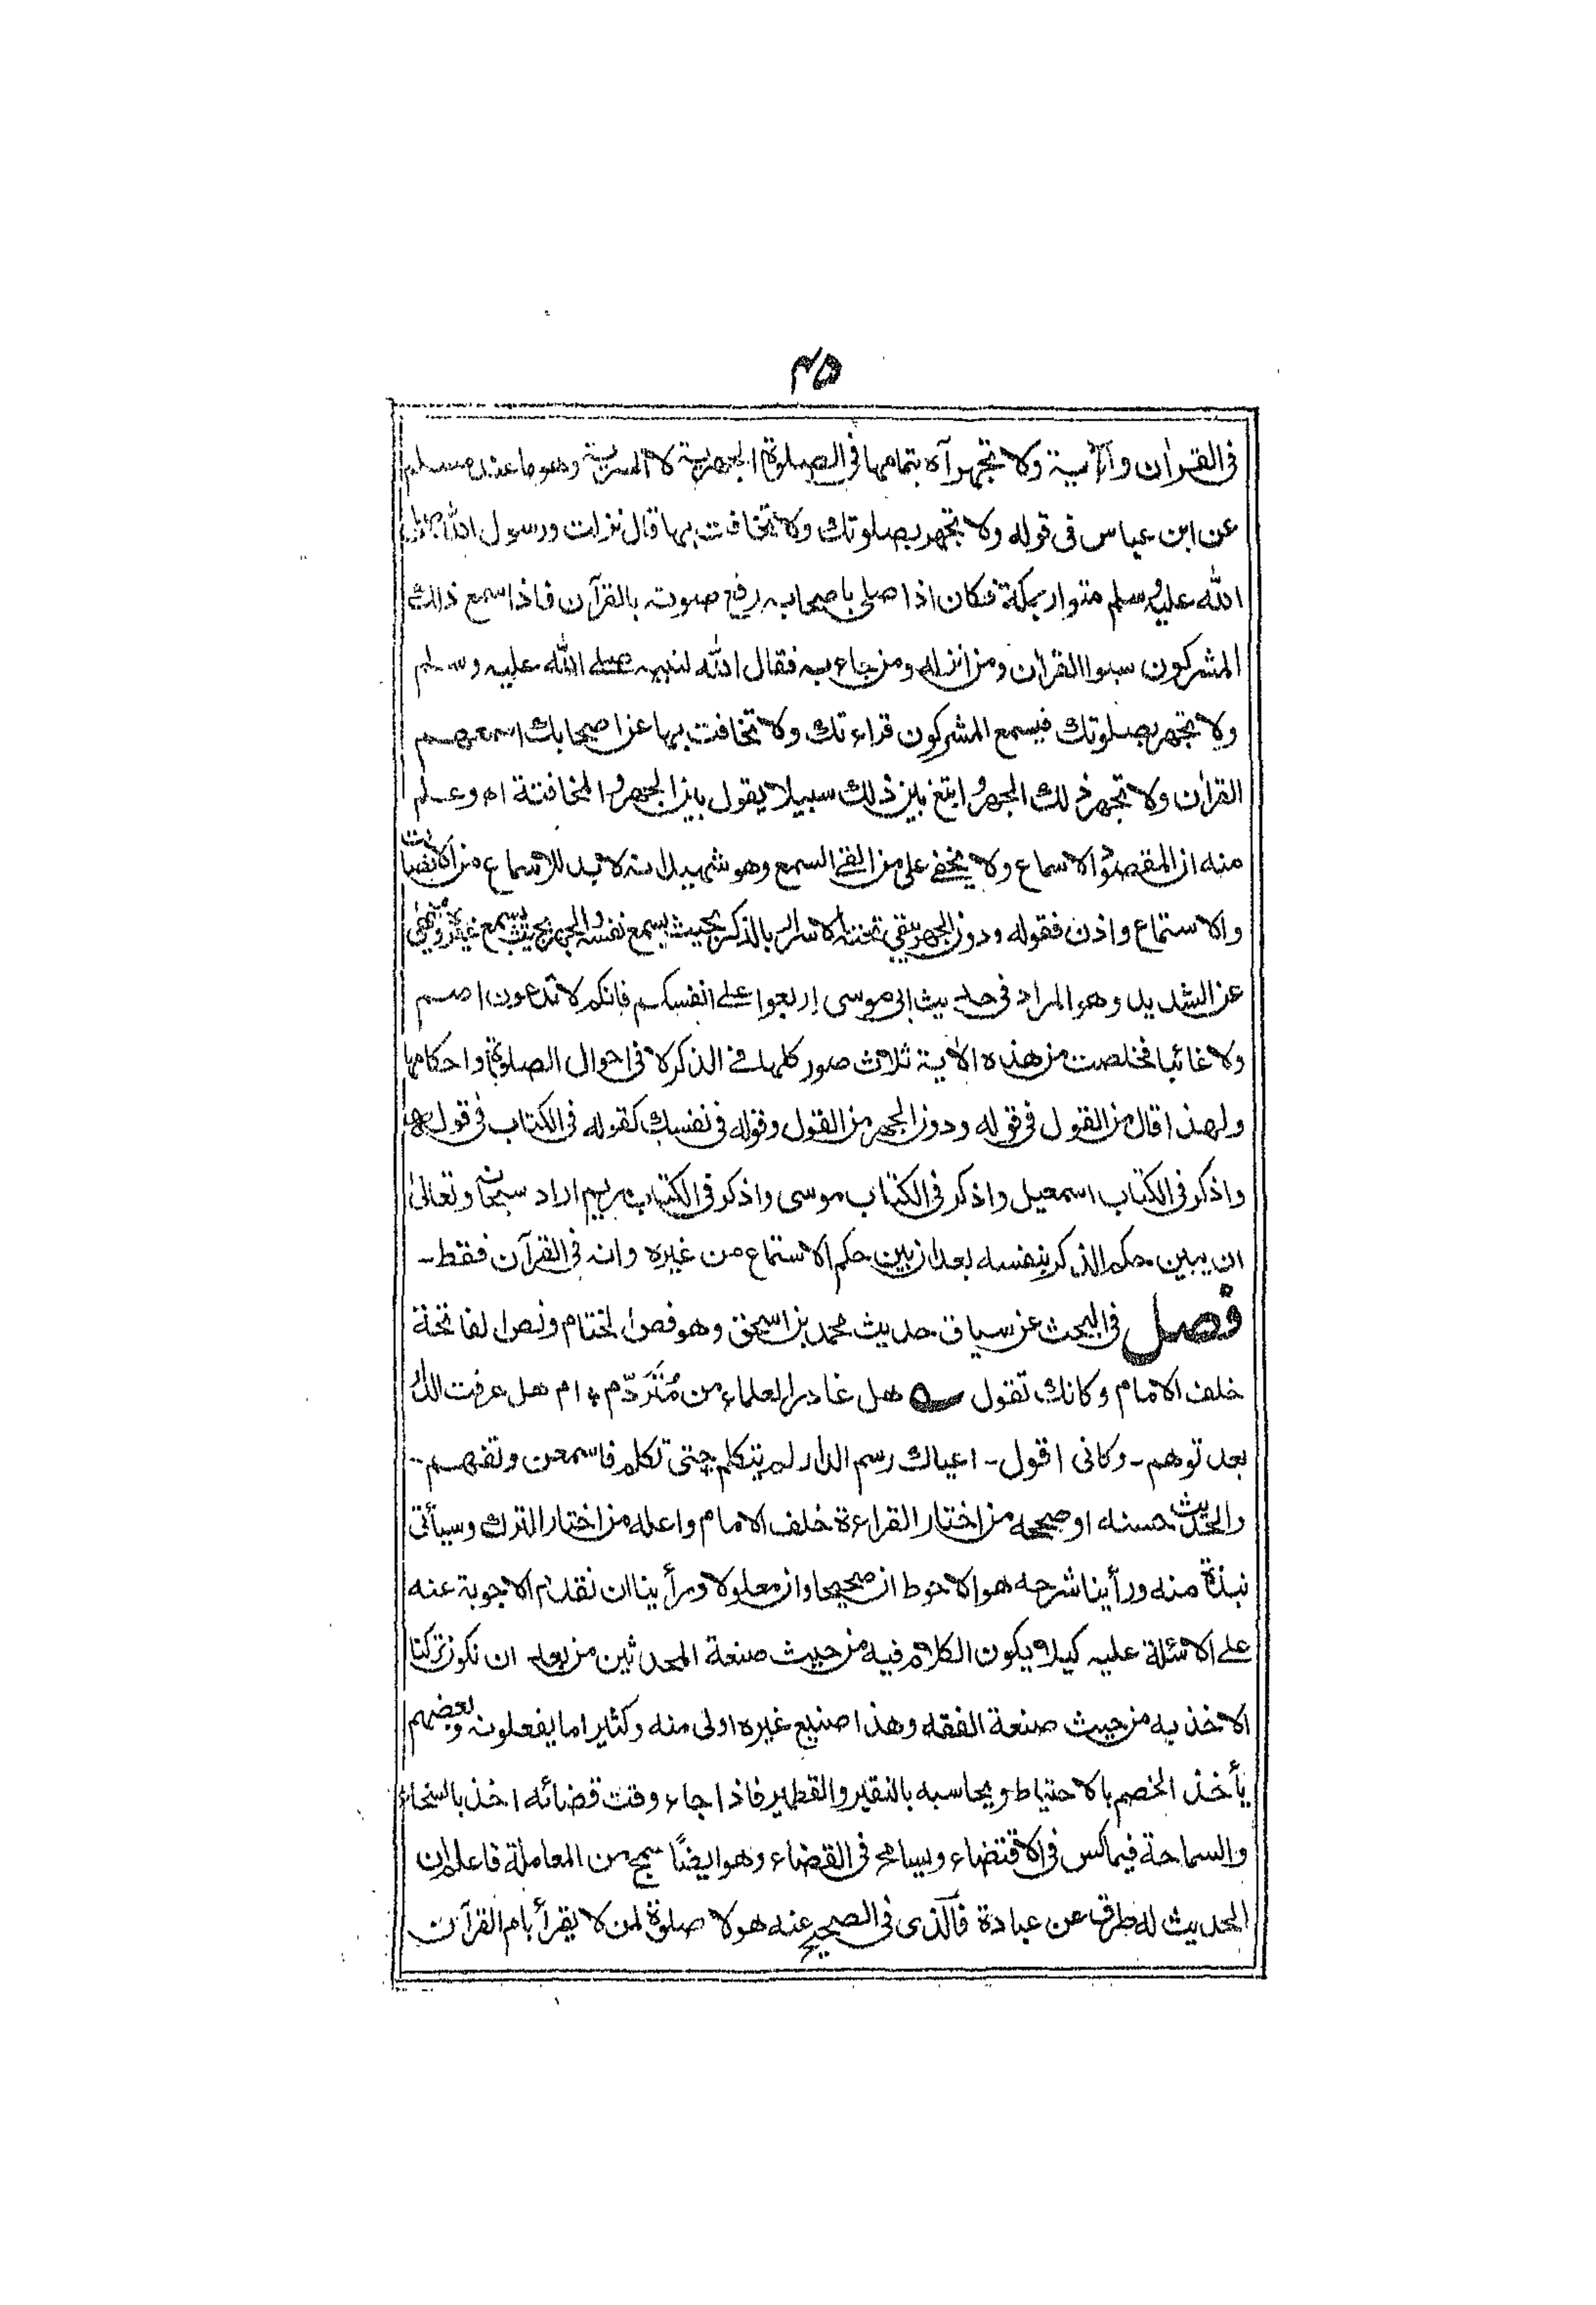 ٤٥
فى القرآن وآية ولا تجهر آه بتمامها فى الصلوة الجهرية لا السرية وهو ما عند مسلم
عن ابن عباس فى قوله ولا تجهر بصلوتك ولا تخافت بها قال نزلت ورسول الله صلى
الله عليه وسلم متوار بمكة فكان اذا صلى باصحابه رفع صوته بالقرآن فاذا سمع ذلك
المشركون سبوا القرآن ومن انزله ومن جاء به فقال الله لنبيه صلى الله عليه وسلم
ولا تجهر بصلوتك فيسمع المشركون قراءتك ولا تخافت بها عن اصحابك اسمعهم
القرآن ولا تجهر ذلك الجهر وابتغ بين ذلك سبيلا يقول بين الجهر والمخافتة اه وعلم
منه ان المقصود الاسماع ولا يخفى على من القى السمع وهو شهيد انه لا بد للاسماع من الانصات
والاستماع واذن فقوله ودون الجهر بقي تحته الاسرار بالذكر بحيث يسمع نفسه والجهر بحيث يسمع غيره ونهى
عن الشديد وهو المراد فى حديث ابى موسى اربعوا على انفسكم فانكم لا تدعون اصم
ولا غائبا فخلصت من هذه الآية ثلاث صور كلها فى الذكر لا فى احوال الصلوة واحكامها
ولهذا قال من القول فى قوله ودون الجهر من القول وقوله فى نفسك كقوله فى الكتاب فى قوله
واذكر فى الكتاب اسمعيل واذكر فى الكتاب موسى واذكر فى الكتاب مريم اراد سبحانه وتعالى
ان يبين حكم الذكر بنفسه بعد ان بين حكم الاستماع من غيره وانه فى القرآن فقط-
فصل فى البحث عن سياق حديث محمد بن اسحق وهو فص الختام ونص الفاتحة
خلف الامام وكانك تقول ؎ هل غادر العلماء من مُتَرَدّم ؛ ام هل عرفت الدار
بعد توهم - وكانى اقول - اعياك رسم الدار لم يتكلم حتى تكلم فاسمعن وتفهم -
والحديث حسنه او صححه من اختار القراءة خلف الامام واعله من اختار الترك وسيأتى
نبذة منه ورأينا شرحه هو الاحوط ان صحيحا وان معلولا ورأينا ان نقدم الاجوبة عنه
على الاسئلة عليه كيلا يكون الكلام فيه من حيث صنعة المحدثين من بعد ان نكون تركنا
الاخذ به من حيث صنعة الفقه وهذا صنيع غيره اولى منه وكثيرا ما يفعلونه وبعضهم
يأخذ الخصم بالاحتياط ويحاسبه بالنقير والقطمير فاذا جاء وقت قضائه اخذ بالسخاء
والسماحة فيماكس فى الاقتضاء ويسامح فى القضاء وهو ايضًا سمج من المعاملة فاعلم ان
الحديث له طرق عن عبادة فالذى فى الصحيح عنه هو لا صلوة لمن لا يقرأ بام القرآن